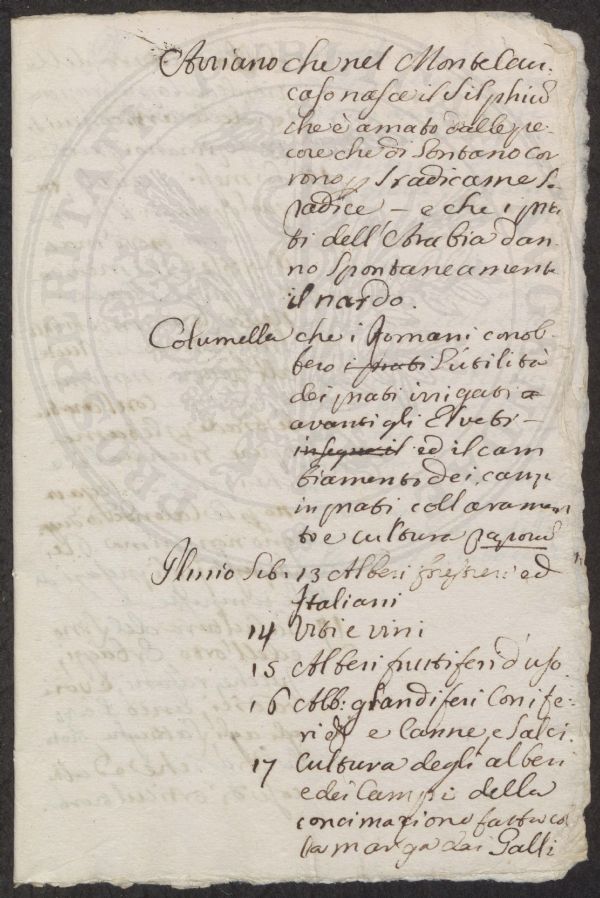 Arriano che nel Monte Cau:
caso nasce il Silphiũ
che è amato dalle pe
core che di lontano cor
rono p sradicarne la
radice – e che i pra
ti dell'Arabia dan
no spontaneamente
il nardo.
Columella che i Romani conob
bero i prati l'utilità
dei prati irrigati
avanti gli Elveti –
insegnò il ed il cam
biamento dei campi
in prati coll'arament
to e cultura
Plinio Lib: 13 Alberi forestieri ed
Italiani
14 Viti e vini
15 Alberi fruttiferi d'uso
16 Alb: glandiferi Conife:
ri e Canne, e Salci.
17 Cultura degli alberi
e dei Campi della
concimazione fatta col
la marga dai Galli